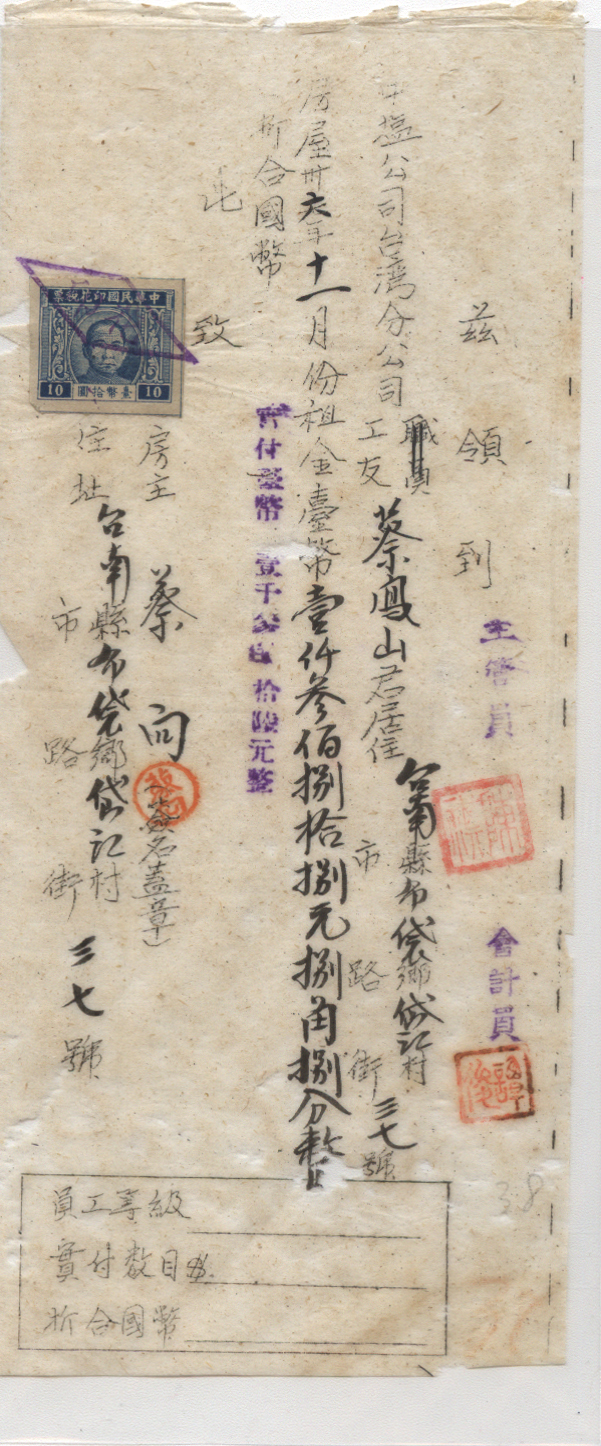 茲領到
主管員
會計員
中塩公司台灣分公司職員工友蔡鳳山君居住台南縣布袋鄉岱江村市路街三七號
房屋卅六年十一月份租金臺幣壹仟叁佰捌拾捌元捌角捌分整
折合國幣
實付臺幣壹千叁百拾陸元整
此致
房主蔡向(簽名蓋章)
住址台南縣布袋鄉岱江村市路街三七號
中華民國印花稅票
10 臺幣拾圓 10
員工等級
實付数目
折合國幣
38